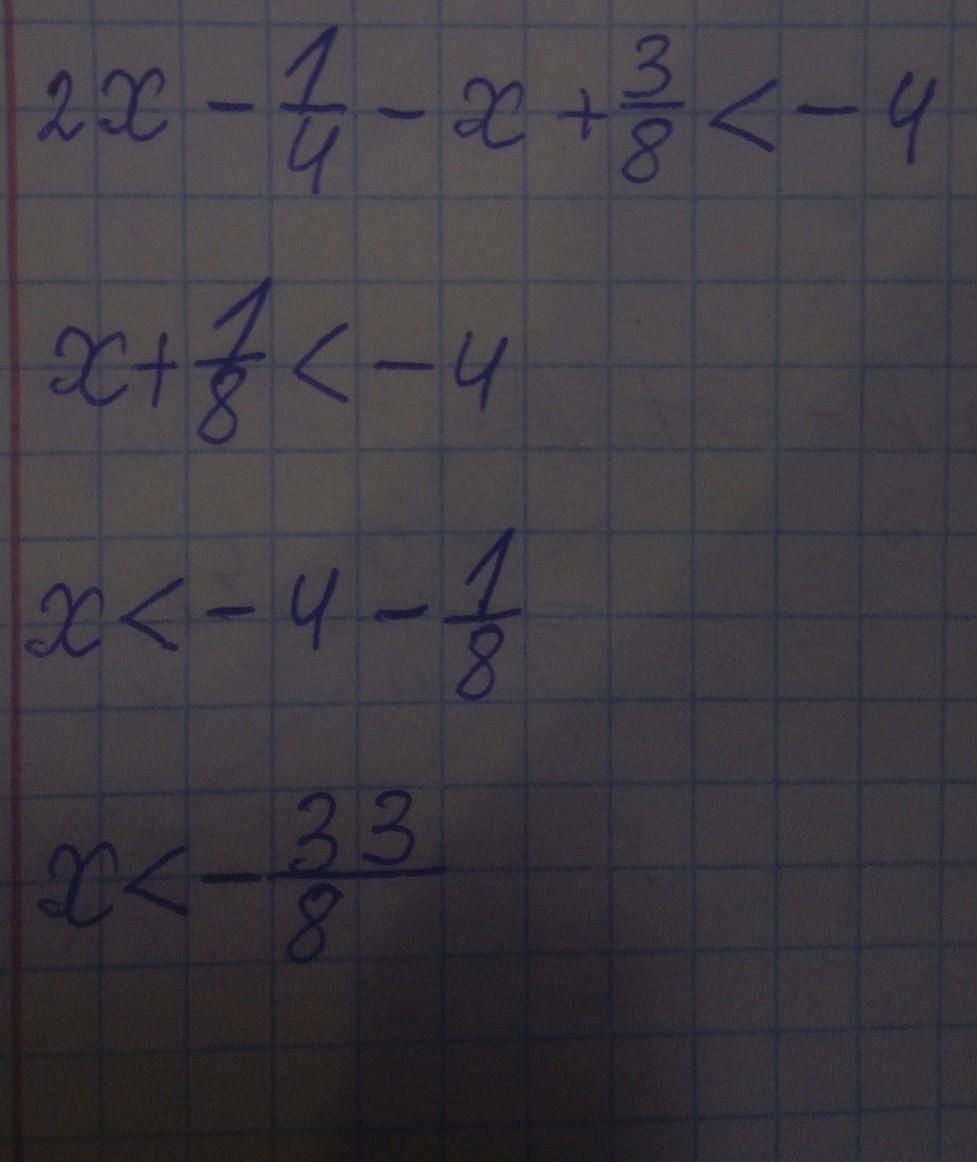 2x - 1/4 - x + 3/8 < - 4
x + 1/8 < - 4
x < - 4 - 1/8
x < - 33/8